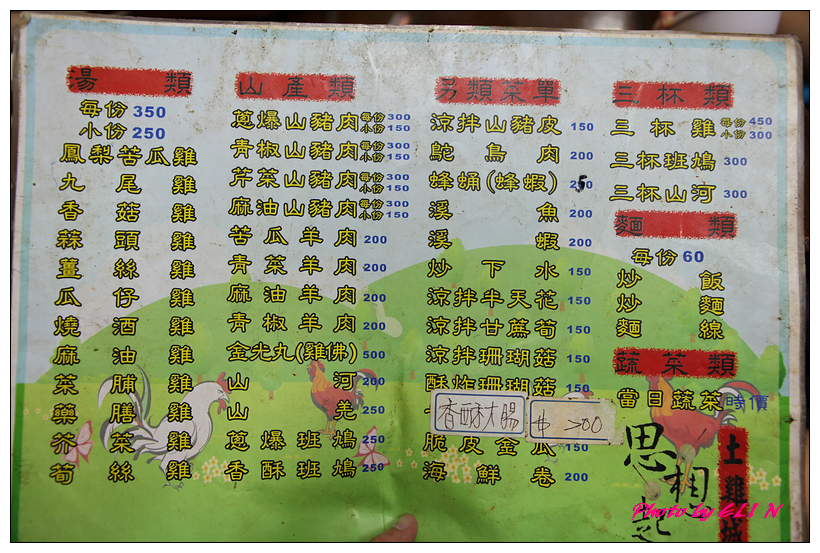 湯類
每份 350
小份 250
鳳梨苦瓜雞
九尾雞
香菇雞
蒜頭雞
薑絲雞
瓜仔雞
燒酒雞
麻油雞
菜脯雞
藥膳雞
芥菜雞
筍絲雞
山產類
蔥爆山豬肉 每份300 小份150
青椒山豬肉 每份300 小份150
芹菜山豬肉 每份300 小份150
麻油山豬肉 每份300 小份150
苦瓜羊肉 200
青菜羊肉 200
麻油羊肉 200
青椒羊肉 200
金光丸(雞佛) 500
山河 200
山羌 250
蔥爆班鳩 250
香酥班鳩 250
另類菜單
涼拌山豬皮 150
鴕鳥肉 200
蜂蛹(蜂蝦) 250
溪魚 200
溪蝦 200
炒下水 150
涼拌半天花 150
涼拌甘蔗筍 150
涼拌珊瑚菇 150
酥炸珊瑚菇 150
香酥大腸 $200
脆皮金瓜 150
海鮮卷 200
三杯類
三杯雞 每份450 小份300
三杯班鳩 300
三杯山河 300
麵類
每份 60
炒飯
炒麵
麵線
蔬菜類
當日蔬菜 時價
思相起
土雞城
Photo by ELIN